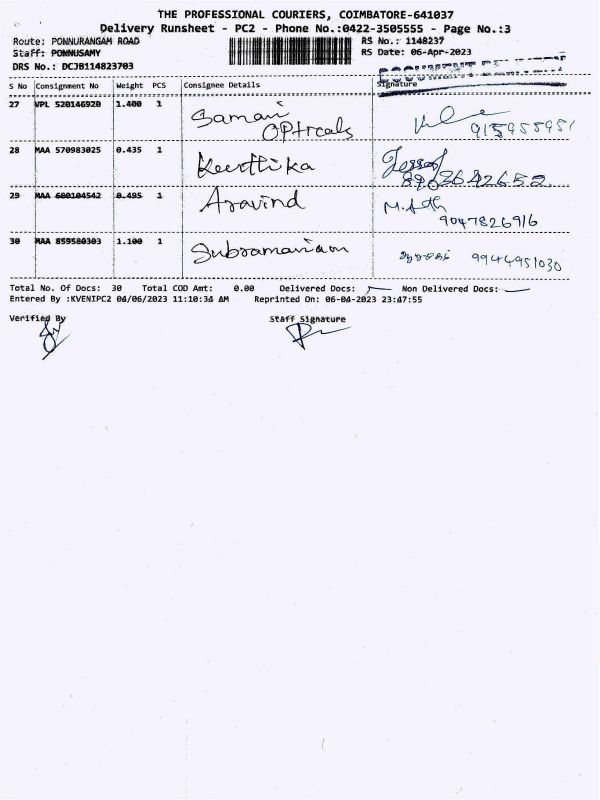 THE PROFESSIONAL COURIERS, COIMBATORE-641037
Delivery Runsheet - PC2 - Phone No.:0422-3505555 - Page No.:3
Route: PONNURANGAM ROAD RS No.: 1148237
Staff: PONNUSAMY RS Date: 06-Apr-2023
DRS No.: DCJB114823703
S No Consignment No Weight PCS Consignee Details Signature
27 VPL 520146920 1.400 1 Saman
Opticals 915955951
28 MAA 570983025 0.435 1 Keerthika
8903642652
29 MAA 600104542 0.495 1 Aravind
9047826916
30 MAA 859580303 1.100 1 Subramaniam 9944951030
Total No. Of Docs: 30 Total COD Amt: 0.00 Delivered Docs: Non Delivered Docs:
Entered By :KVENIPC2 04/06/2023 11:10:34 AM Reprinted On: 06-04-2023 23:47:55
Verified By Staff Signature